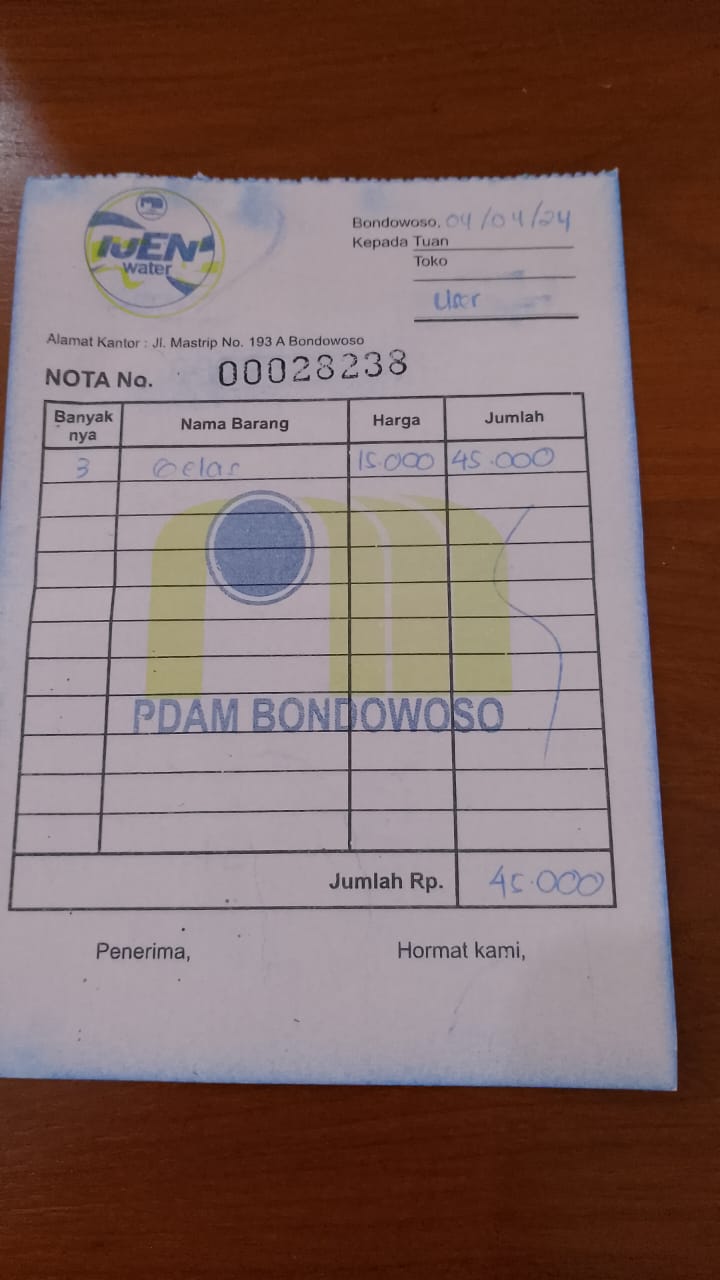 IJEN
water
Bondowoso, 04/04/24
Kepada Tuan
Toko
User
Alamat Kantor : Jl. Mastrip No. 193 A Bondowoso
NOTA No. 00028238
Banyak nya Nama Barang Harga Jumlah
3 Gelas 15.000 45.000
PDAM BONDOWOSO
Jumlah Rp. 45.000
Penerima, Hormat kami,